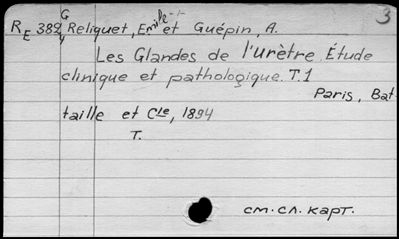 3
G
RE 389 Reliquet, Emile et Guépin, A.
4
Les Glandes de l'urètre. Étude
clinique et pathologique. T.1
Paris, Bat
taille et Cie, 1894
T.
см. сл. карт.